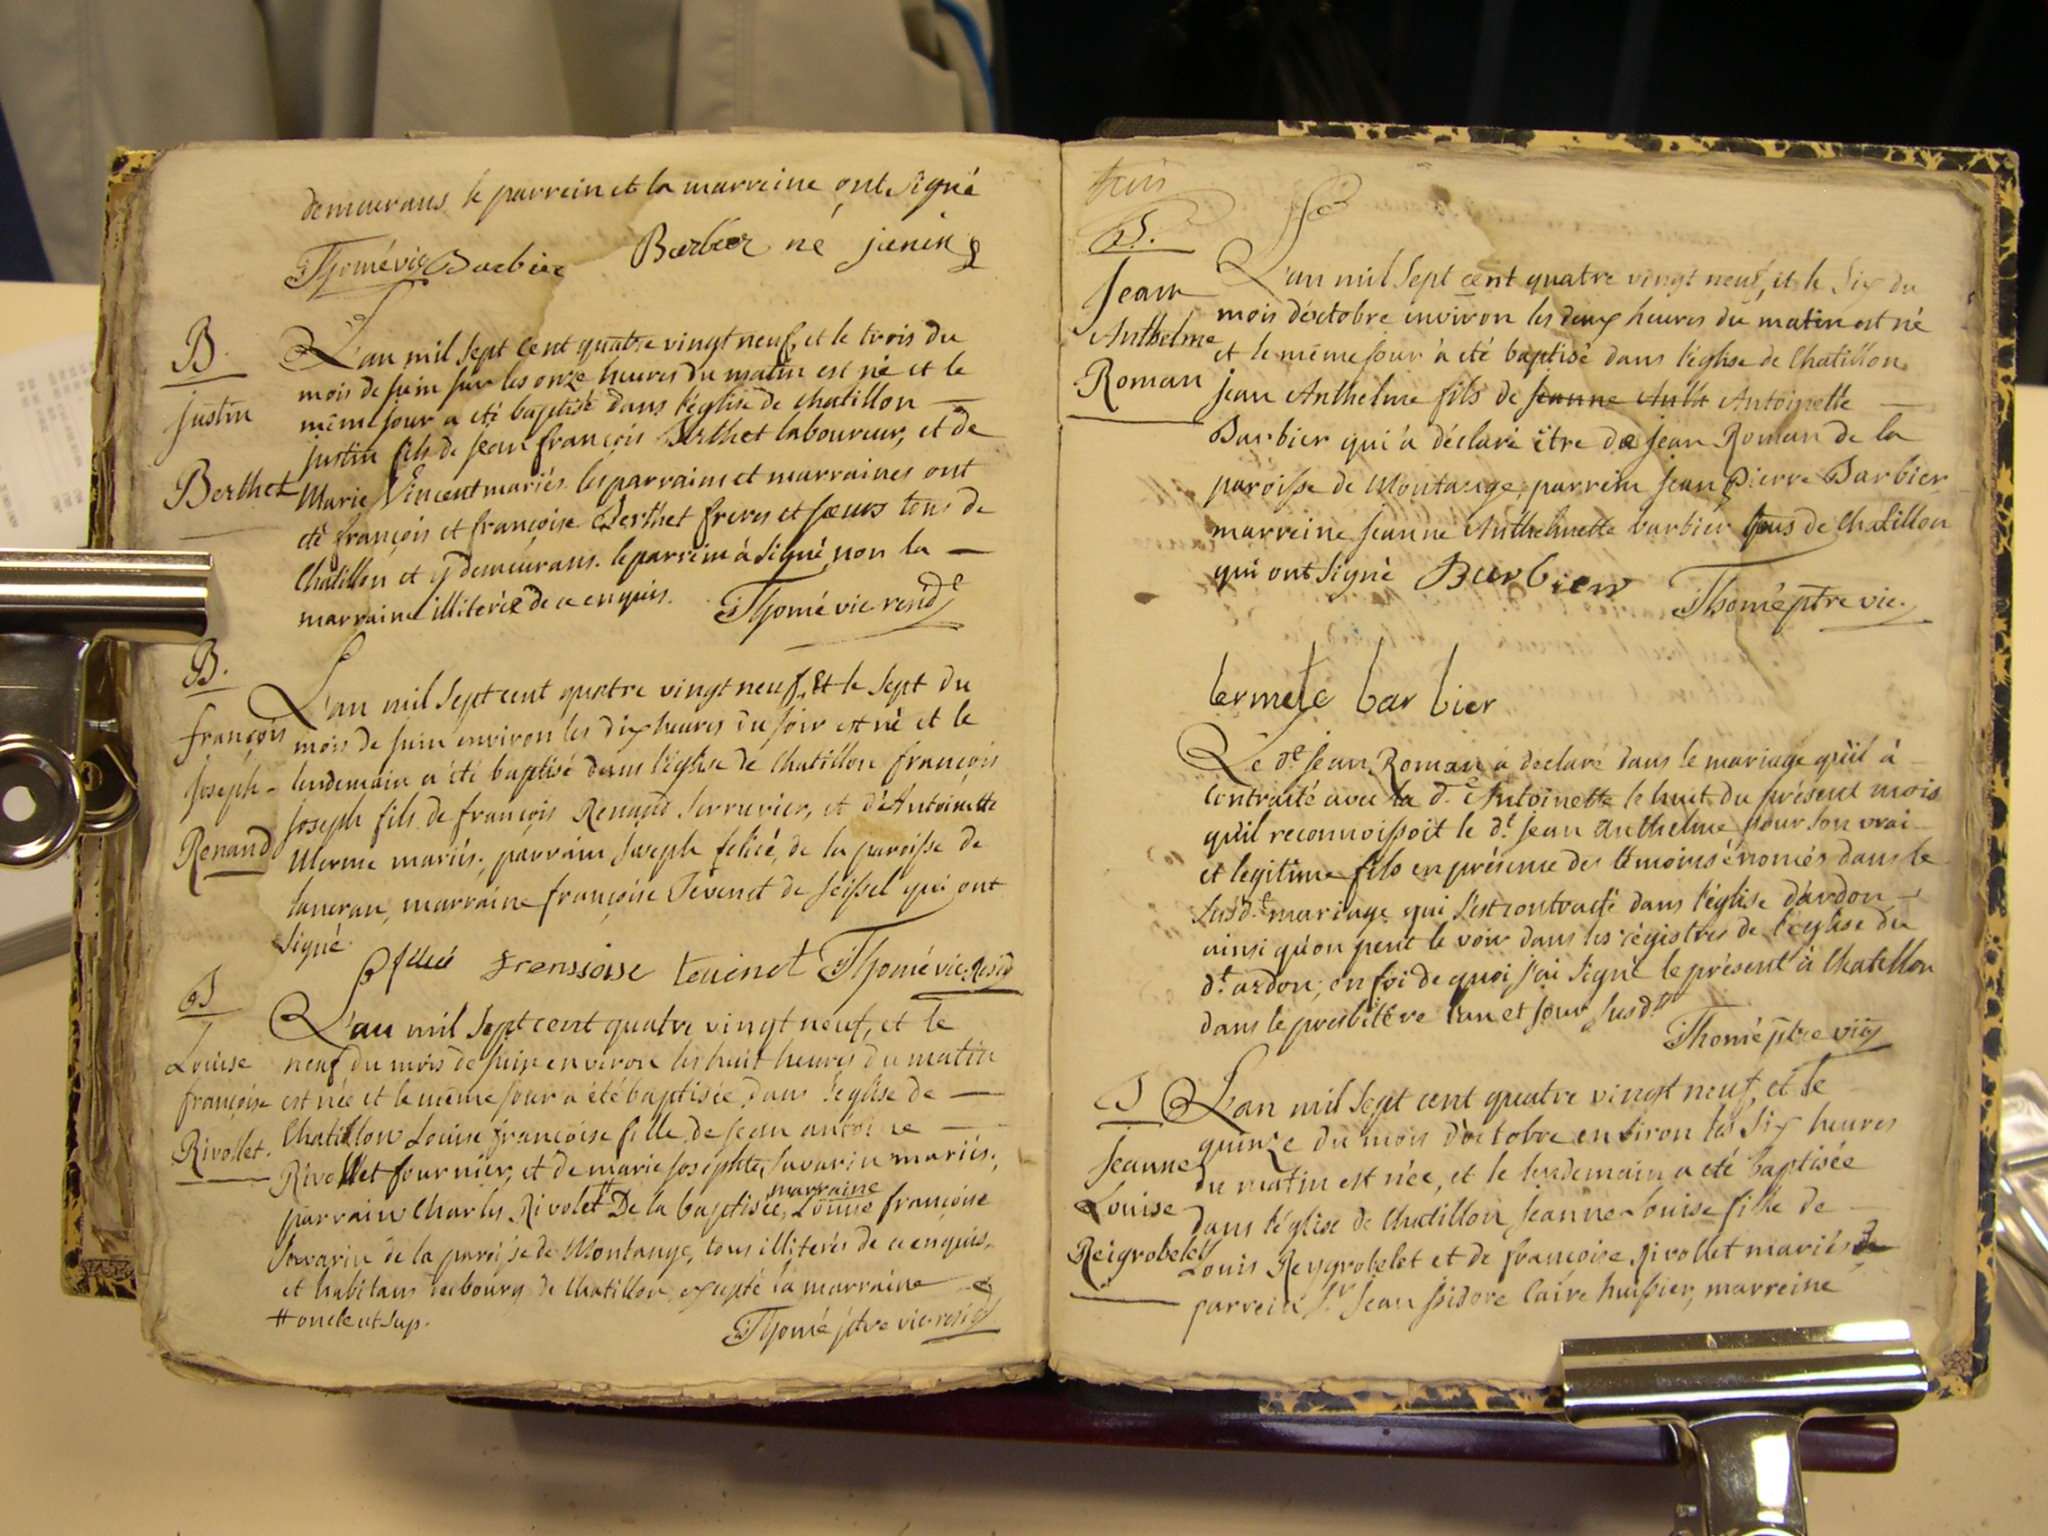 demeurans le parrein et la marreine ont signé
Thomé vic Barbier Barbier né jenin
B.
justin
Berthet
L'an mil sept cent quatre vingt neuf, et le trois du
mois de juin sur les onze heures du matin est né et le
même jour a eté baptisé dans l'église de chatillon
justin fils de jean françois Berthet laboureur, et de
Marie Vincent mariés. les parrains et marraines ont
eté françois et françoise Berthet freres et sœurs tous de
Chatillon et y demeurans. le parrein à signé non la
marraine illiterée de ce enquis. Thomé vic resid.e
B.
françois
joseph
Renand
L'an mil sept cent quatre vingt neuf, et le sept du
mois de juin environ les dix heures du soir est né et le
lendemain a été baptisé dans l'église de chatillon françois
joseph fils de françois Renand serrurier, et d'Antoinette
Merme mariés; parrain joseph felicé, de la paroisse de
lancran, marraine françoise Tevenet de seissel qui ont
signé.
franssoise tevinet Thomé vic. resid
B
Louise
françoise
Rivollet.
L'an mil sept cent quatre vingt neuf, et le
neuf du mois de juin environ les huit heures du matin
est née et le même jour a été baptisée dans l'église de
Chatillon Louise françoise fille de jean antoine
Rivollet fournier, et de marie josephte savarin mariés.
parrain Charles Rivolet # De la baptisée, marraine Louise françoise
savarin de la paroisse de Montange, tous illiterés de ce enquis.
et habitans au bourg de Chatillon, excepté la marraine
# oncle ut sup.
Thomé ptre vic. resid
trois
B.
Jean
Anthelme
Roman
L'an mil sept cent quatre vingt neuf, et le six du
mois d'octobre environ les deux heures du matin est né
et le même jour à eté baptisé dans l'église de Chatillon
jean Anthelme fils de Jeanne Anth Antoinette
Barbier qui à déclaré être de jean Roman de la
paroisse de Montange; parrein jean Pierre Barbier
marreine jeanne Anthelmette barbier tous de Chatillon
qui ont signé Barbier Thomé ptre vic.
termete barbier
Le d.t jean Roman à declaré dans le mariage qu'il à
contracté avec la d.e Antoinette le huit du présent mois
qu'il reconnoissoit le d.t jean Anthelme pour son vrai
et legitime fils en présence des témoins énomés dans le
susd.t mariage qui s'est contracté dans l'église d'ardon
ainsi qu'on peut le voir dans les régistres de l'église du
d.t ardon; en foi de quoi j'ai signé le présent à Chatillon
dans le presbitère l'an et jour susd.ts
Thomé ptre vic
B
Jeanne
Louise
Reigrobelet
L'an mil sept cent quatre vingt neuf, et le
quinze du mois d'octobre environ les six heures
du matin est née, et le lendemain a eté baptisée
dans l'église de Chatillon jeanne Louise fille de
Louis Reygrobelet et de françoise Rivollet mariés
parrein S.r jean isidore Caire huissier, marreine